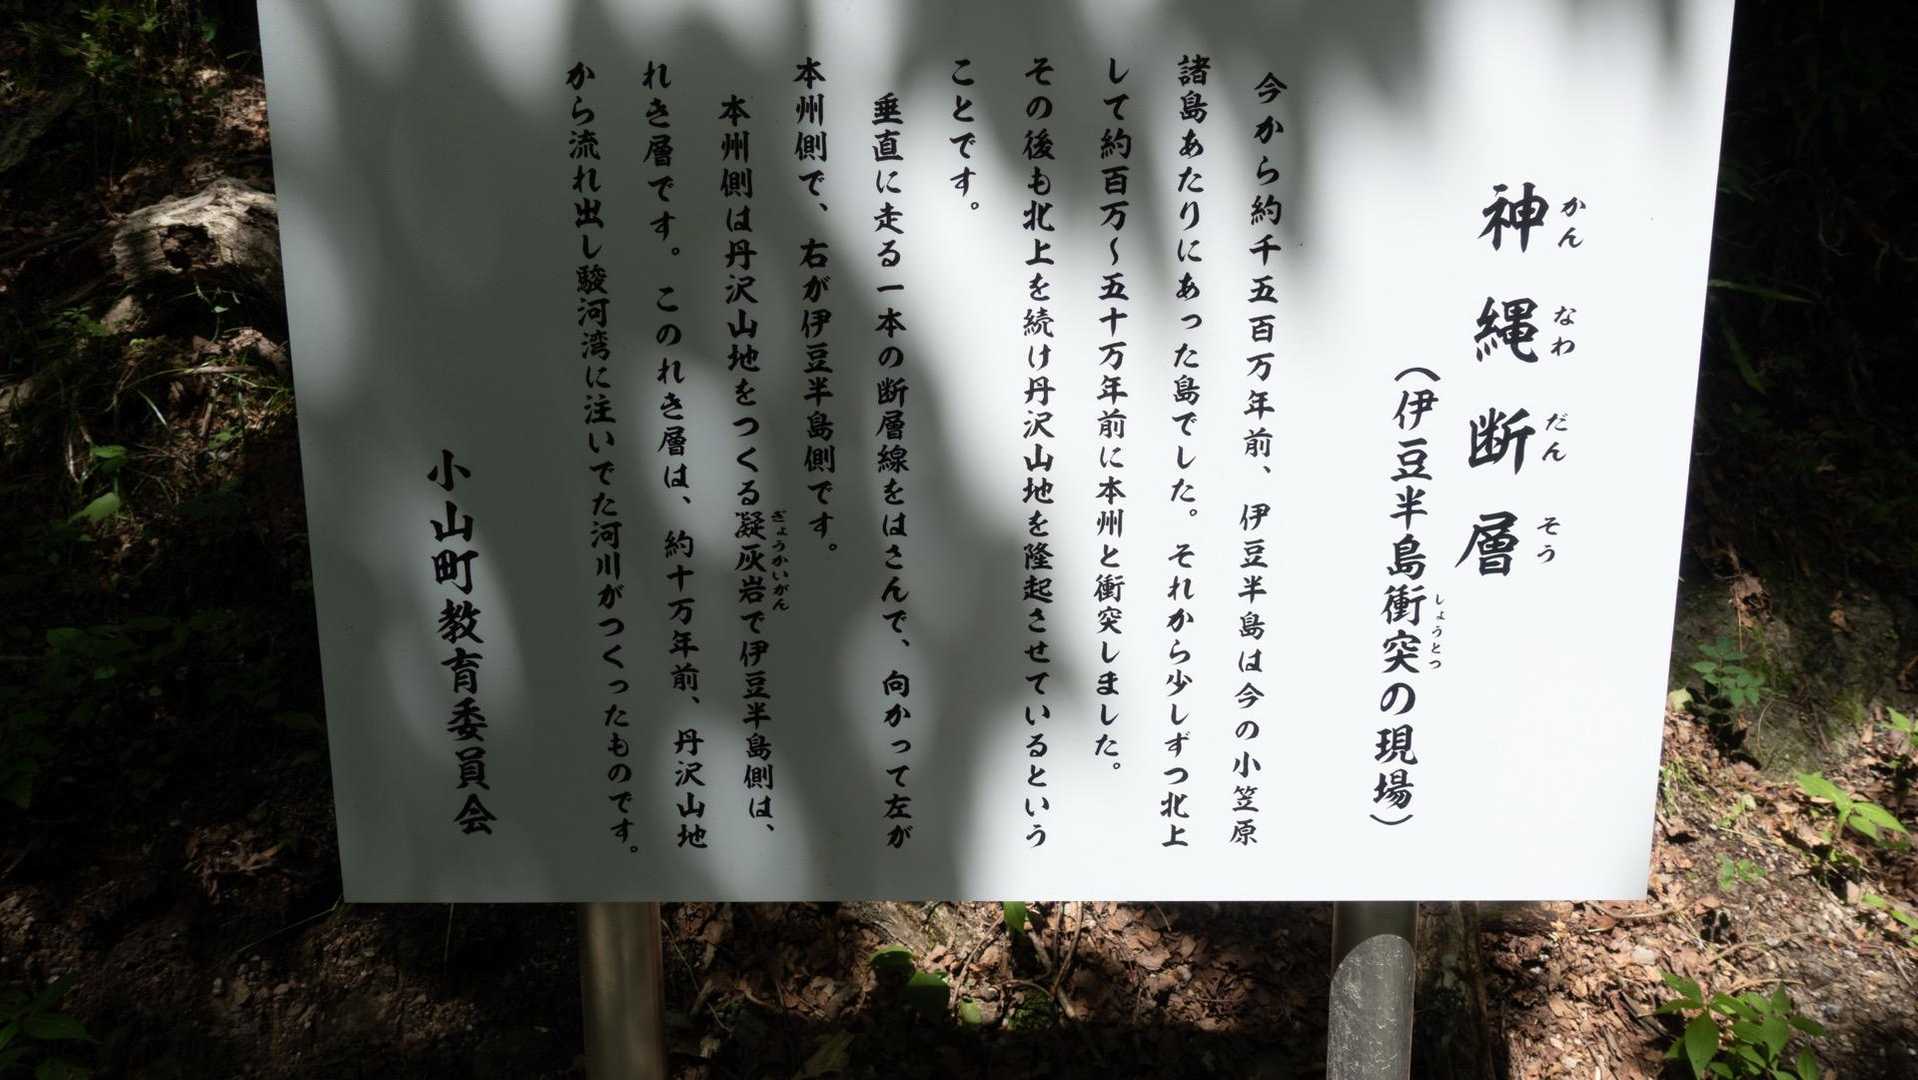 神縄断層
かんなわだんそう
（伊豆半島衝突の現場）
しょうとつ
今から約千五百万年前、伊豆半島は今の小笠原
諸島あたりにあった島でした。それから少しずつ北上
して約百万～五十万年前に本州と衝突しました。
その後も北上を続け丹沢山地を隆起させているという
ことです。
垂直に走る一本の断層線をはさんで、向かって左が
本州側で、右が伊豆半島側です。
本州側は丹沢山地をつくる凝灰岩で伊豆半島側は、
ぎょうかいがん
れき層です。このれき層は、約十万年前、丹沢山地
から流れ出し駿河湾に注いでた河川がつくったものです。
小山町教育委員会